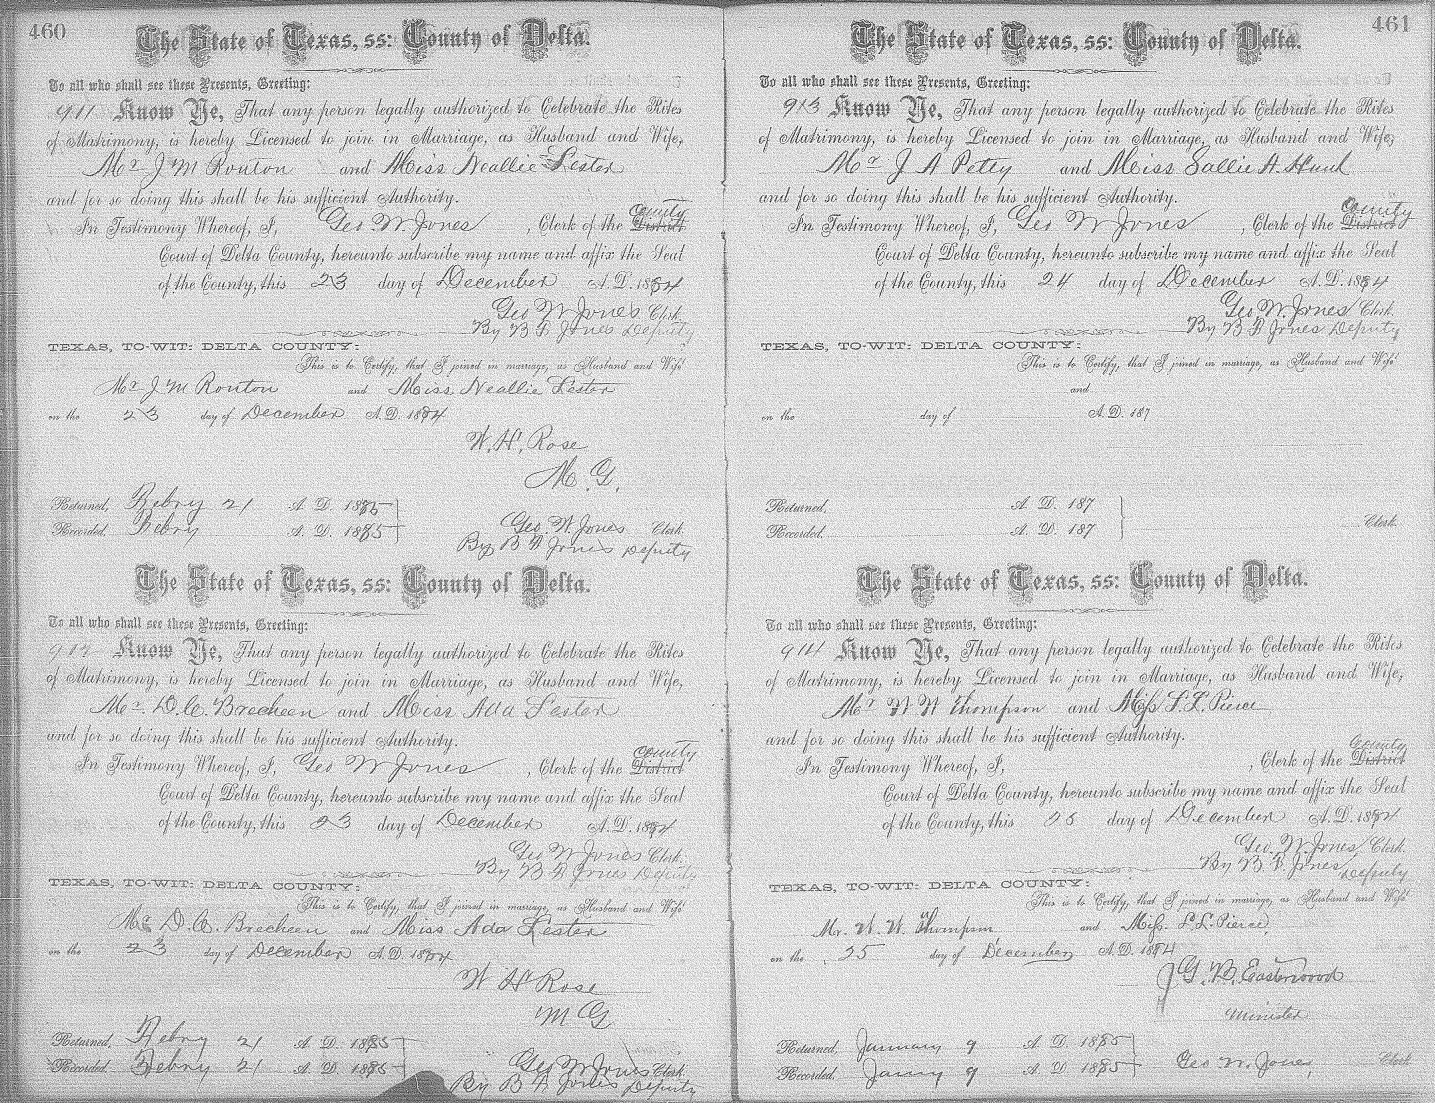 460
The State of Texas, ss: County of Delta.
To all who shall see these Presents, Greeting:
911 Know Ye, That any person legally authorized to Celebrate the Rites
of Matrimony, is hereby Licensed to join in Marriage, as Husband and Wife,
Mr J M Routon and Miss Neallie Lester
and for so doing this shall be his sufficient Authority.
In Testimony Whereof, I, Geo. W. Jones, Clerk of the District County
Court of Delta County, hereunto subscribe my name and affix the Seal
of the County, this 23 day of December A.D. 1884
Geo W Jones Clerk.
By B F Jones Deputy
TEXAS, TO-WIT: DELTA COUNTY:
This is to Certify, that I joined in marriage, as Husband and Wife
Mr J M Routon and Miss Neallie Lester
on the 23 day of December A.D. 1884
W. H. Rose
M. G.
Returned, Febry 21 A. D. 1885
Recorded, Febry A. D. 1885
Geo. W. Jones Clerk.
By B F Jones Deputy
The State of Texas, ss: County of Delta.
To all who shall see these Presents, Greeting:
912 Know Ye, That any person legally authorized to Celebrate the Rites
of Matrimony, is hereby Licensed to join in Marriage, as Husband and Wife,
Mr. D. C. Brecheen and Miss Ada Lester
and for so doing this shall be his sufficient Authority.
In Testimony Whereof, I, Geo W Jones, Clerk of the District County
Court of Delta County, hereunto subscribe my name and affix the Seal
of the County, this 23 day of December A.D. 1884
Geo W Jones Clerk.
By B F Jones Deputy
TEXAS, TO-WIT: DELTA COUNTY:
This is to Certify, that I joined in marriage, as Husband and Wife
Mr D. C. Brecheen and Miss Ada Lester
on the 23 day of December A.D. 1884
W H Rose
M G
Returned, Febry 21 A. D. 1885
Recorded, Febry 21 A. D. 1885
Geo W Jones Clerk.
By B F Jones Deputy
461
The State of Texas, ss: County of Delta.
To all who shall see these Presents, Greeting:
913 Know Ye, That any person legally authorized to Celebrate the Rites
of Matrimony, is hereby Licensed to join in Marriage, as Husband and Wife,
Mr J A Petty and Miss Sallie A. Hunt
and for so doing this shall be his sufficient Authority.
In Testimony Whereof, I, Geo W Jones, Clerk of the District County
Court of Delta County, hereunto subscribe my name and affix the Seal
of the County, this 24 day of December A.D. 1884
Geo. W. Jones Clerk.
By B F Jones Deputy
TEXAS, TO-WIT: DELTA COUNTY:
This is to Certify, that I joined in marriage, as Husband and Wife
and
on the day of A.D. 187
Returned, A. D. 187
Recorded, A. D. 187
Clerk.
The State of Texas, ss: County of Delta.
To all who shall see these Presents, Greeting:
914 Know Ye, That any person legally authorized to Celebrate the Rites
of Matrimony, is hereby Licensed to join in Marriage, as Husband and Wife,
Mr W W Thompson and Miss L. L. Pierce
and for so doing this shall be his sufficient Authority.
In Testimony Whereof, I, , Clerk of the District County
Court of Delta County, hereunto subscribe my name and affix the Seal
of the County, this 25 day of December A.D. 1884
Geo. W. Jones Clerk.
By B F Jones Deputy
TEXAS, TO-WIT: DELTA COUNTY:
This is to Certify, that I joined in marriage, as Husband and Wife
Mr. W. W. Thompson and Miss. L. L. Pierce,
on the 25 day of December A.D. 1884
J. G. B. Easterwood
Minister
Returned, January 9 A. D. 1885
Recorded, Janry 9 A. D. 1885
Geo W. Jones, Clerk